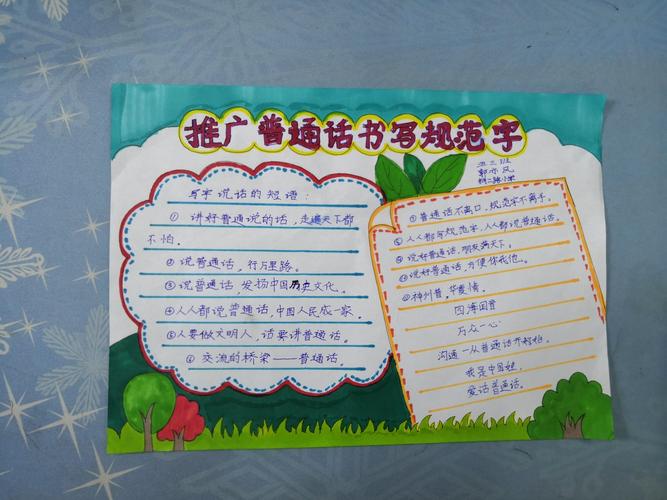 推广普通话书写规范字
五三班
郭亦凤
写字说话的短语：
① 讲好普通说的话，走遍天下都
不怕。
②说普通话，行万里路。
③说普通话 发扬中国历史文化。
④人人都说普通话，中国人民成一家。
⑤人要做文明人，话要讲普通话。
⑥ 交流的桥梁——普通话。
①普通话不离口，规范字不离手。
②人人都写规范字，人人都说普通话。
③说好普通话，朋友满天下。
④说好普通话，方便你我他。
⑤神州音，华夏情。
四海同音
万众一心
沟通－从普通话开始
我是中国娃
爱说普通话。